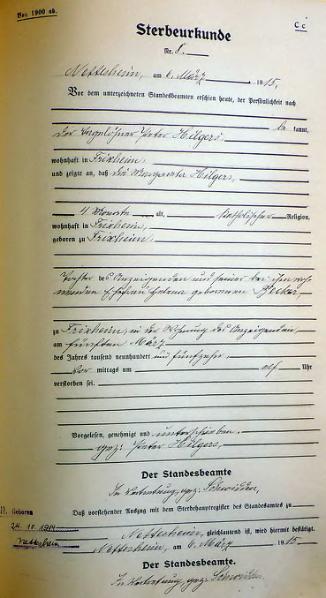 Von 1900 ab.
C c
Sterbeurkunde
Nr. 8.
Nettesheim, am 6. März 1915.
Vor dem unterzeichneten Standesbeamten erschien heute, der Persönlichkeit nach
be kannt,
der Tagelöhner Peter Hilgers
wohnhaft in Frixheim,
und zeigte an, daß die Margaretha Hilgers,
4 Monate alt, katholischer Religion,
wohnhaft in Frixheim,
geboren zu Frixheim,
Tochter des Anzeigenden und seiner bei ihm woh
nenden Ehefrau Helena geborenen Becker
zu Frixheim, in der Wohnung des Anzeigenden,
am fünften März
des Jahres tausend neunhundert und fünfzehn
vor mittags um elf Uhr
verstorben sei.
Vorgelesen, genehmigt und unterschrieben
gez: Peter Hilgers,
Der Standesbeamte
In Vertretung, gez:
Daß vorstehender Auszug mit dem Sterbehauptregister des Standesamtes zu
Geboren
24. 10. 1914
Nettesheim
Nettesheim, gleichlautend ist, wird hiermit bestätigt.
Nettesheim, am 6. März 1915.
Der Standesbeamte.
In Vertretung, gez: